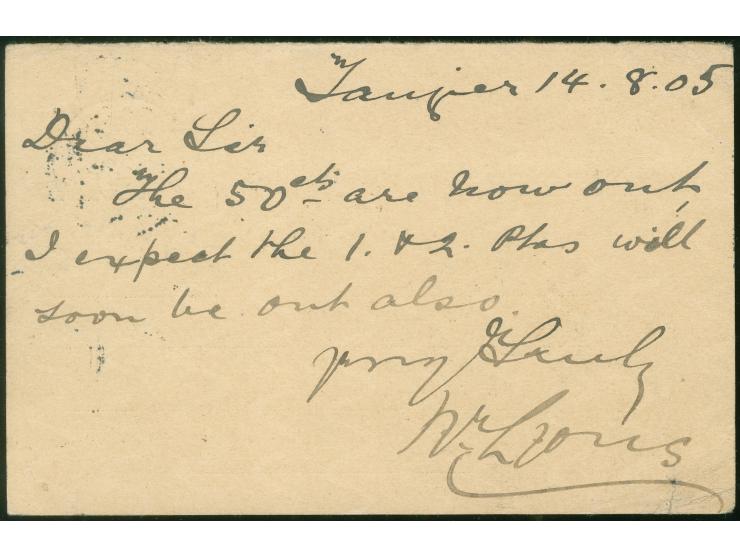 Tangier 14. 8. 05
Dear Sir
The 50cts are now out,
I expect the 1. & 2. Ptas will
soon be out also.
yours Truly
Wm Lyons